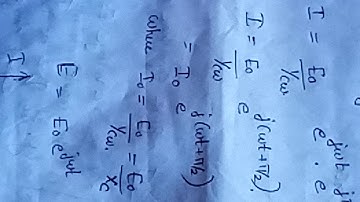 I = E₀/(1/cω) e^jωt · e^j
I = E₀/(1/cω) e^j(ωt+π/2)
= I₀ e^j(ωt+π/2)
where I₀ = E₀/(1/cω) = E₀/Xc
E = E₀ e^jωt
I ↑